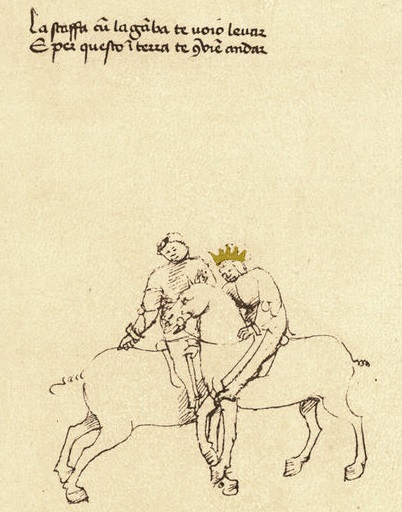 La staffa cū la gāba te uoio leuar
E per questo ī terra te ꝯuiē andar